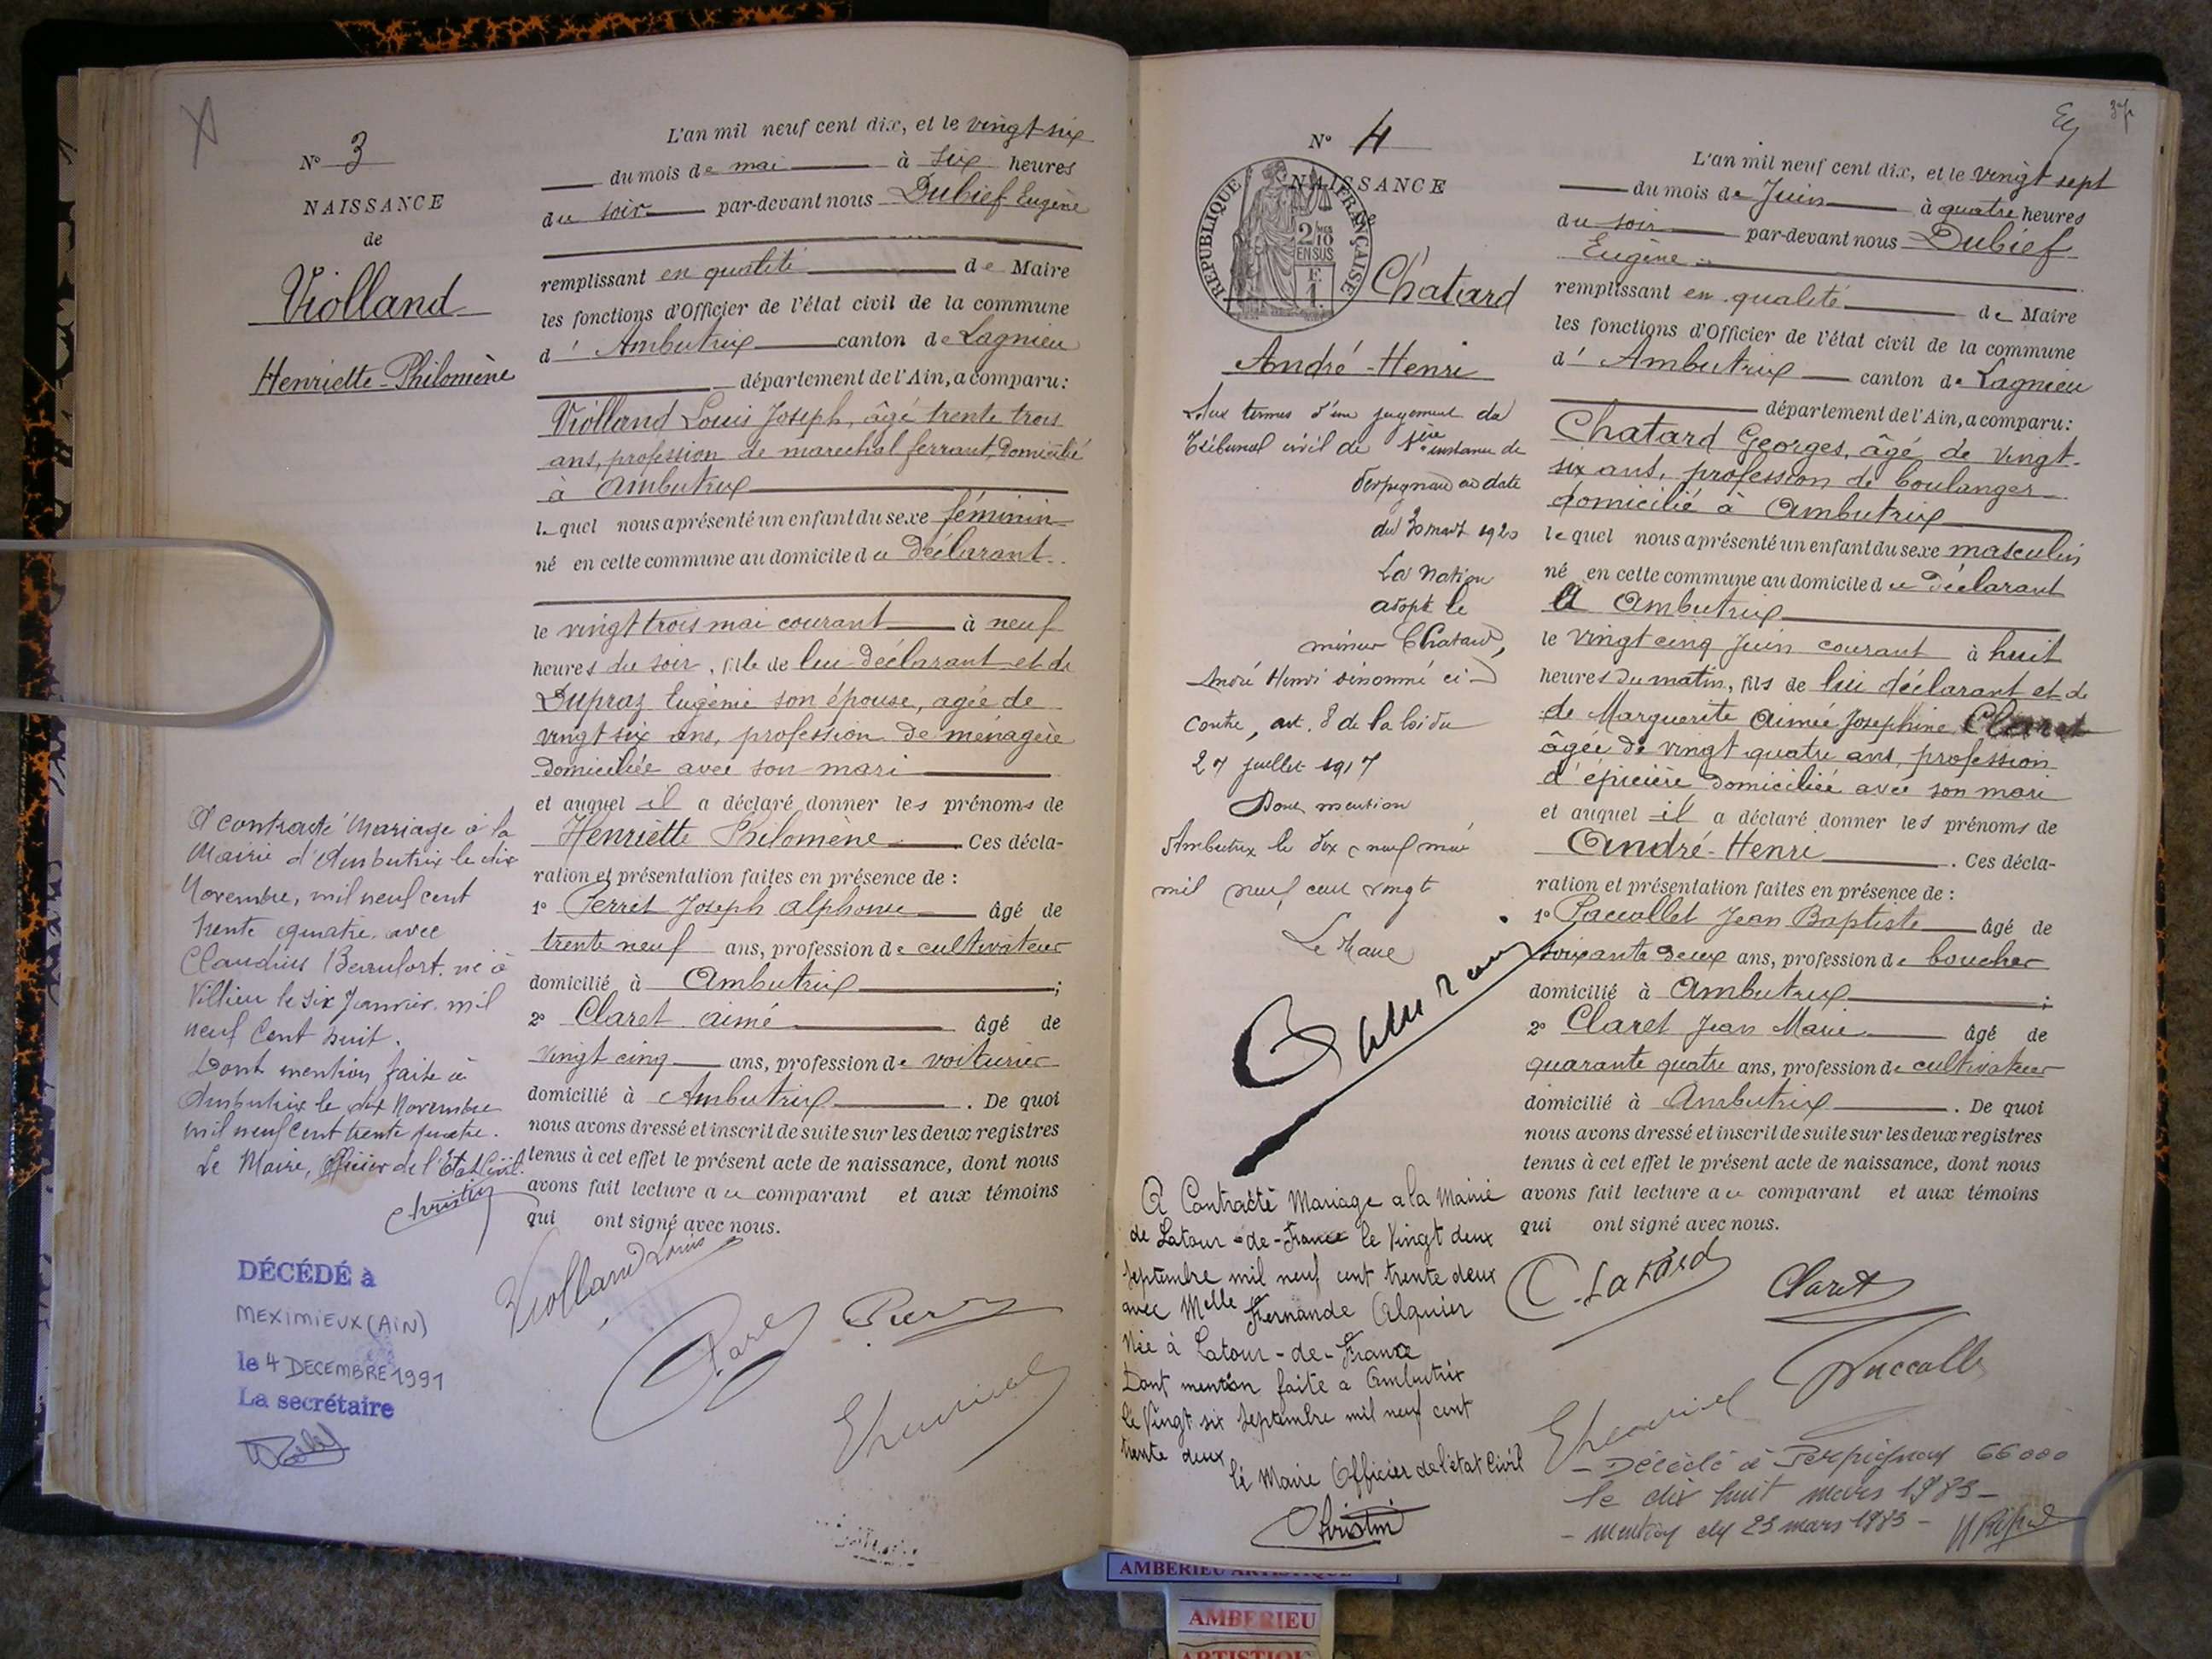 N° 3
NAISSANCE
de
Violland
Henriette-Philomène
A contracté mariage à la
Mairie d'Ambutrix le dix
Novembre, mil neuf cent
trente quatre avec
Claudius Beaufort né à
Villieu le six Janvier mil
neuf Cent huit.
Dont mention faite à
Ambutrix le dix Novembre
mil neuf Cent trente quatre.
Le Maire, Officier de l'Etat Civil.
Christin
DÉCÉDÉ à
MEXIMIEUX (AIN)
le 4 DECEMBRE 1991
La secrétaire
L'an mil neuf cent dix, et le vingt six
du mois de mai à six heures
du soir par-devant nous Dubief Eugène
remplissant en qualité de Maire
les fonctions d'Officier de l'état civil de la commune
d' Ambutrix canton de Lagnieu
département de l'Ain, a comparu:
Violland Louis Joseph, âgé trente trois
ans, profession de marechal ferrant, domicilié
à Ambutrix
lequel nous a présenté un enfant du sexe féminin
né en cette commune au domicile du déclarant
le vingt trois mai courant à neuf
heures du soir, fille de lui déclarant et de
Dupraz Eugénie son épouse, agée de
vingt six ans, profession de ménagère
domiciliée avec son mari
et auquel il a déclaré donner les prénoms de
Henriette Philomène. Ces décla-
ration et présentation faites en présence de :
1° Perret Joseph Alphonse âgé de
trente neuf ans, profession de cultivateur
domicilié à Ambutrix ;
2° Claret aimé âgé de
vingt cinq ans, profession de voiturier
domicilié à Ambutrix. De quoi
nous avons dressé et inscrit de suite sur les deux registres
tenus à cet effet le présent acte de naissance, dont nous
avons fait lecture au comparant et aux témoins
qui ont signé avec nous.
Violland Louis
37
N° 4
NAISSANCE
de
REPUBLIQUE FRANÇAISE
2/10 MES
EN SUS
F
1.
Chatard
André-Henri
Aux termes d'un jugement du
Tribunal civil de 1ère instance de
Perpignan en date
du 30 mars 1920
La Nation
adopte le
mineur Chatard,
André Henri dénommé ci
contre, art. 8 de la loi du
27 juillet 1917
Dont mention
Ambutrix le dix neuf mai
mil neuf cent vingt
Le Maire
A Contracté Mariage a la Mairie
de Latour-de-France le Vingt deux
Septembre mil neuf cent trente deux
avec Melle Fernande Alquier
Née à Latour-de-France
Dont mention faite a Ambutrix
le Vingt six Septembre mil neuf cent
trente deux
le Maire Officier de l'état Civil
Christin
L'an mil neuf cent dix, et le vingt sept
du mois de Juin à quatre heures
du soir par-devant nous Dubief
Eugène
remplissant en qualité de Maire
les fonctions d'Officier de l'état civil de la commune
d' Ambutrix canton de Lagnieu
département de l'Ain, a comparu:
Chatard Georges, âgé de vingt-
six ans, profession de boulanger
domicilié à Ambutrix
lequel nous a présenté un enfant du sexe masculin
né en cette commune au domicile du déclarant
à Ambutrix
le vingt cinq Juin courant à huit
heures du matin, fils de lui déclarant et de
de Marguerite Aimée Josephine Claret
âgée de vingt quatre ans, profession
d'épicière domiciliée avec son mari
et auquel il a déclaré donner les prénoms de
André-Henri. Ces décla-
ration et présentation faites en présence de :
1° Paccallet Jean Baptiste âgé de
soixante deux ans, profession de boucher
domicilié à Ambutrix ;
2° Claret Jean Marie âgé de
quarante quatre ans, profession de cultivateur
domicilié à Ambutrix. De quoi
nous avons dressé et inscrit de suite sur les deux registres
tenus à cet effet le présent acte de naissance, dont nous
avons fait lecture au comparant et aux témoins
qui ont signé avec nous.
Chatard
Claret
- Décédé à Perpignan 66000
le dix huit mars 1983 -
- mention le 23 mars 1983 -
AMBERIEU ARTISTIQUE
AMBERIEU
ARTISTIQUE